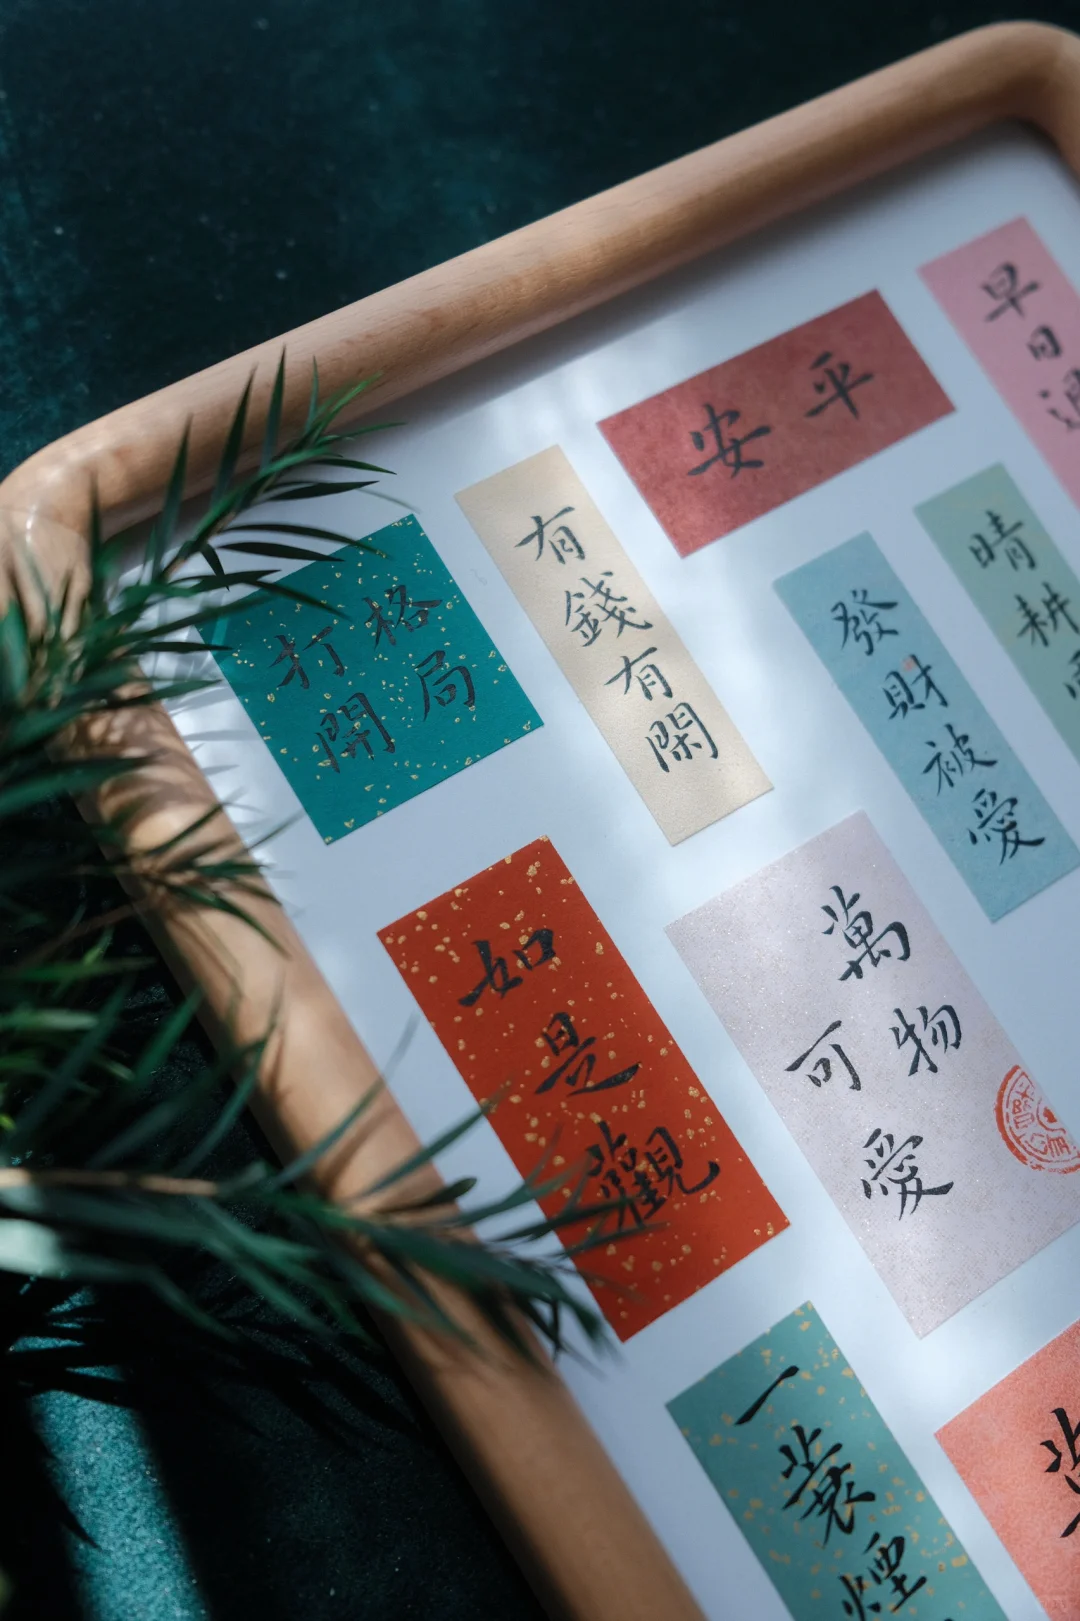 早日
平安
晴耕
有錢有閑
發財被愛
打開
格局
如是觀
萬物
可愛
一蓑煙